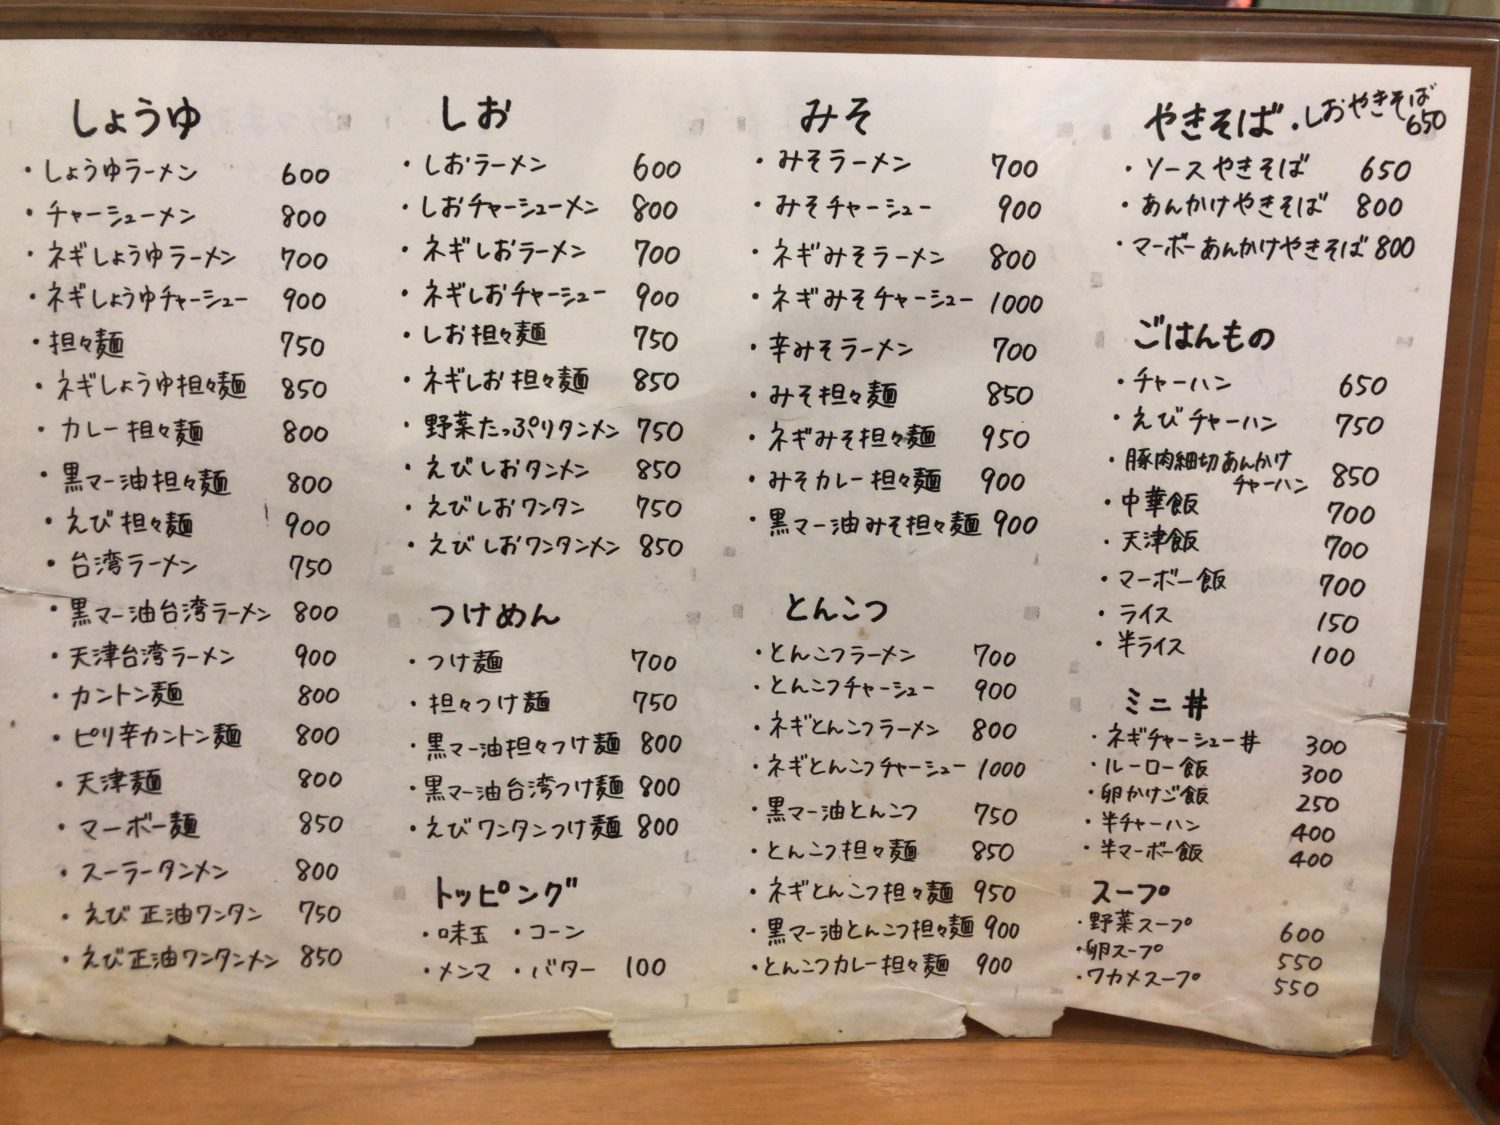 しょうゆ
・しょうゆラーメン 600
・チャーシューメン 800
・ネギしょうゆラーメン 700
・ネギしょうゆチャーシュー 900
・担々麺 750
・ネギしょうゆ担々麺 850
・カレー担々麺 800
・黒マー油担々麺 800
・えび担々麺 900
・台湾ラーメン 750
・黒マー油台湾ラーメン 800
・天津台湾ラーメン 900
・カントン麺 800
・ピリ辛カントン麺 800
・天津麺 800
・マーボー麺 850
・スーラータンメン 800
・えび正油ワンタン 750
・えび正油ワンタンメン 850
しお
・しおラーメン 600
・しおチャーシューメン 800
・ネギしおラーメン 700
・ネギしおチャーシュー 900
・しお担々麺 750
・ネギしお担々麺 850
・野菜たっぷりタンメン 750
・えびしおタンメン 850
・えびしおワンタン 750
・えびしおワンタンメン 850
つけめん
・つけ麺 700
・担々つけ麺 750
・黒マー油担々つけ麺 800
・黒マー油台湾つけ麺 800
・えびワンタンつけ麺 800
トッピング
・味玉 ・コーン
・メンマ ・バター 100
みそ
・みそラーメン 700
・みそチャーシュー 900
・ネギみそラーメン 800
・ネギみそチャーシュー 1000
・辛みそラーメン 700
・みそ担々麺 850
・ネギみそ担々麺 950
・みそカレー担々麺 900
・黒マー油みそ担々麺 900
とんこつ
・とんこつラーメン 700
・とんこつチャーシュー 900
・ネギとんこつラーメン 800
・ネギとんこつチャーシュー 1000
・黒マー油とんこつ 750
・とんこつ担々麺 850
・ネギとんこつ担々麺 950
・黒マー油とんこつ担々麺 900
・とんこつカレー担々麺 900
やきそば ・しおやきそば 650
・ソースやきそば 650
・あんかけやきそば 800
・マーボーあんかけやきそば 800
ごはんもの
・チャーハン 650
・えびチャーハン 750
・豚肉細切あんかけ
チャーハン 850
・中華飯 700
・天津飯 700
・マーボー飯 700
・ライス 150
・半ライス 100
ミニ丼
・ネギチャーシュー丼 300
・ルーロー飯 300
・卵かけご飯 250
・半チャーハン 400
・半マーボー飯 400
スープ
・野菜スープ 600
・卵スープ 550
・ワカメスープ 550